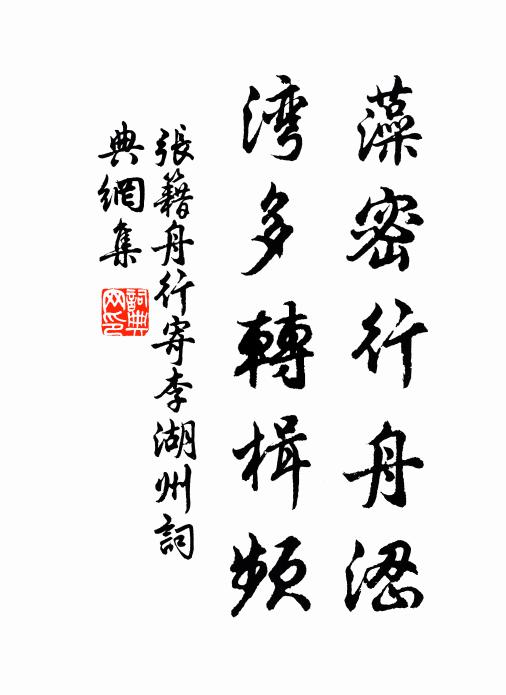 藻密行舟涩
湾多轉楫频
張籍舟行寄李湖州詞
典網集
詞典網印